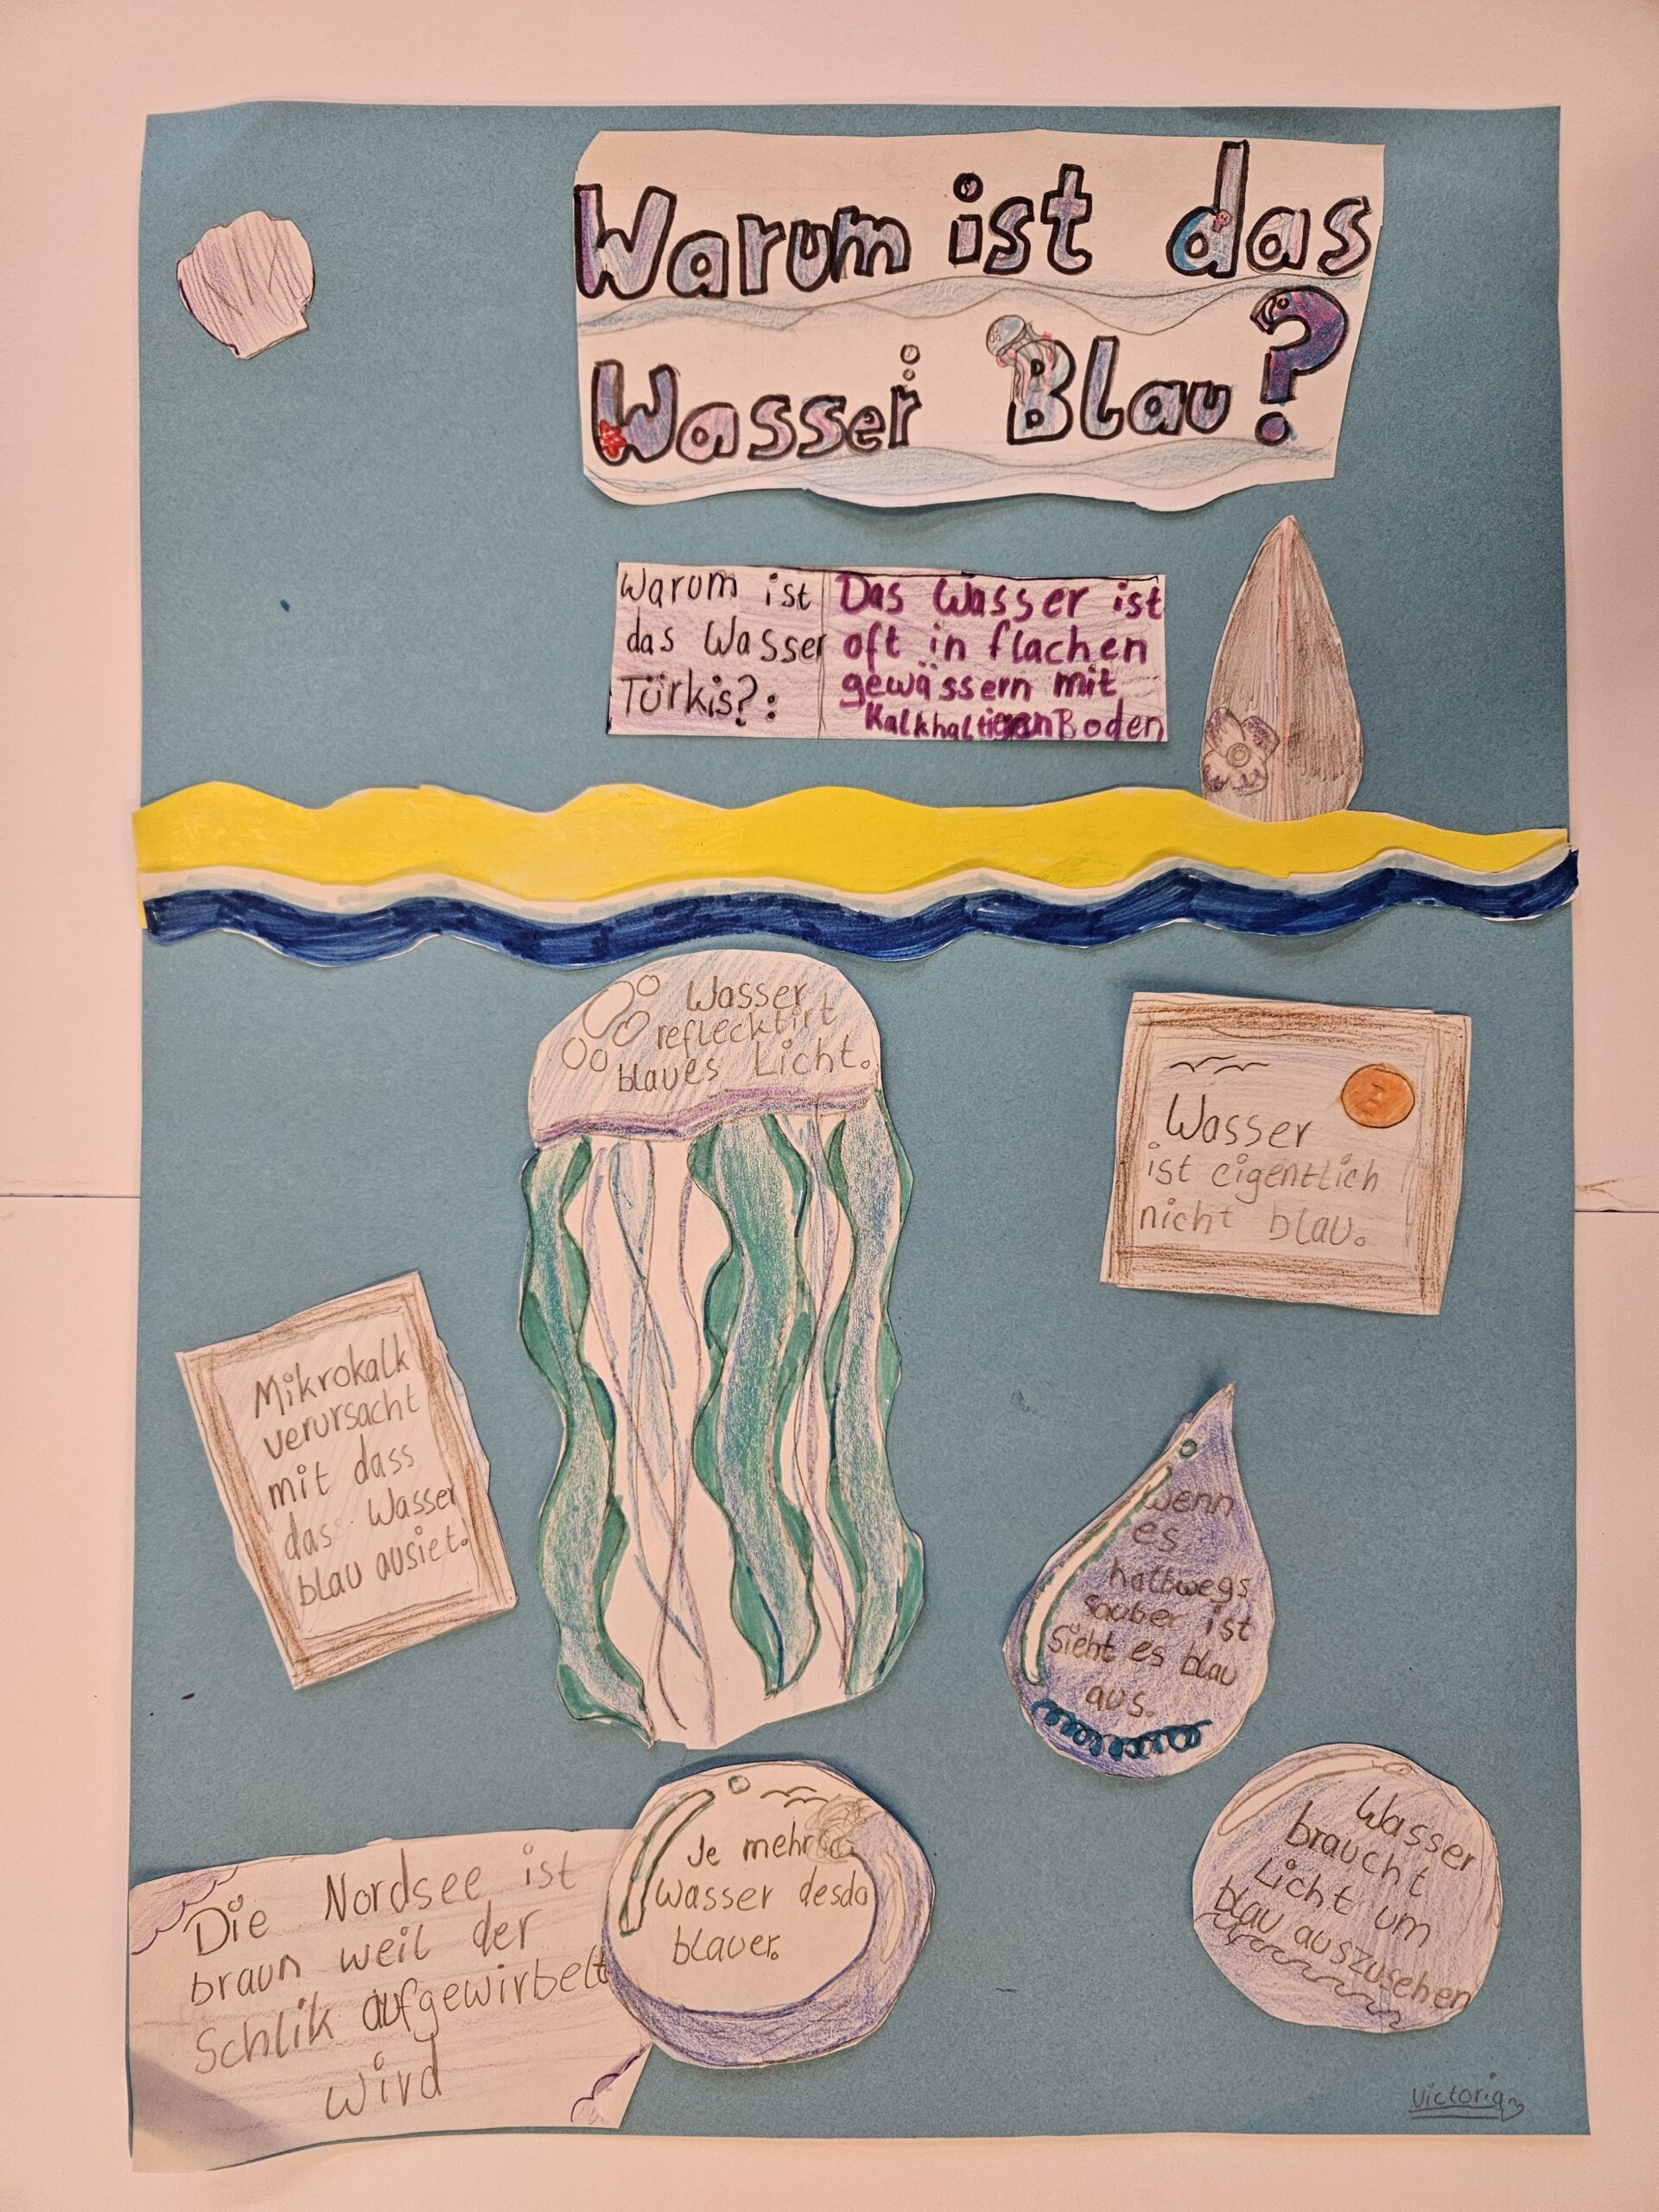 Warum ist das
Wasser Blau?
Warum ist
das Wasser
Türkis?:
Das Wasser ist
oft in flachen
gewässern mit
Kalkhaltigen Boden
Wasser
reflecktirt
blaues Licht.
Wasser
ist eigentlich
nicht blau.
Mikrokalk
verursacht
mit dass
das Wasser
blau ausiet.
wenn
es
halbwegs
sauber ist
sieht es blau
aus.
Je mehr
Wasser desdo
blauer.
Wasser
braucht
Licht um
blau auszusehen
Die Nordsee ist
braun weil der
Schlik aufgewirbelt
wird
Victoria